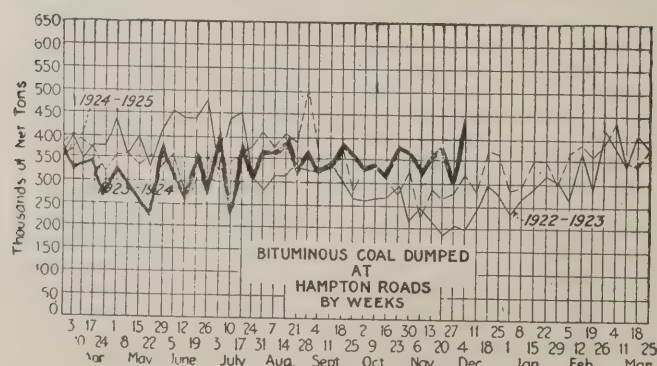 650
600
550
500
450
400
350
300
250
200
150
100
50
0
Thousands of Net Tons
1924-1925
1923-1924
1922-1923
BITUMINOUS COAL DUMPED
AT
HAMPTON ROADS
BY WEEKS
3 17 1 15 29 12 26 10 24 7 21 4 18 2 16 30 13 27 11 25 8 22 5 19 4 18
10 24 8 22 5 19 3 17 31 14 28 11 25 9 23 6 20 4 18 1 15 29 12 26 11 25
May June July Aug. Sept Oct Nov Dec Jan Feb Mar